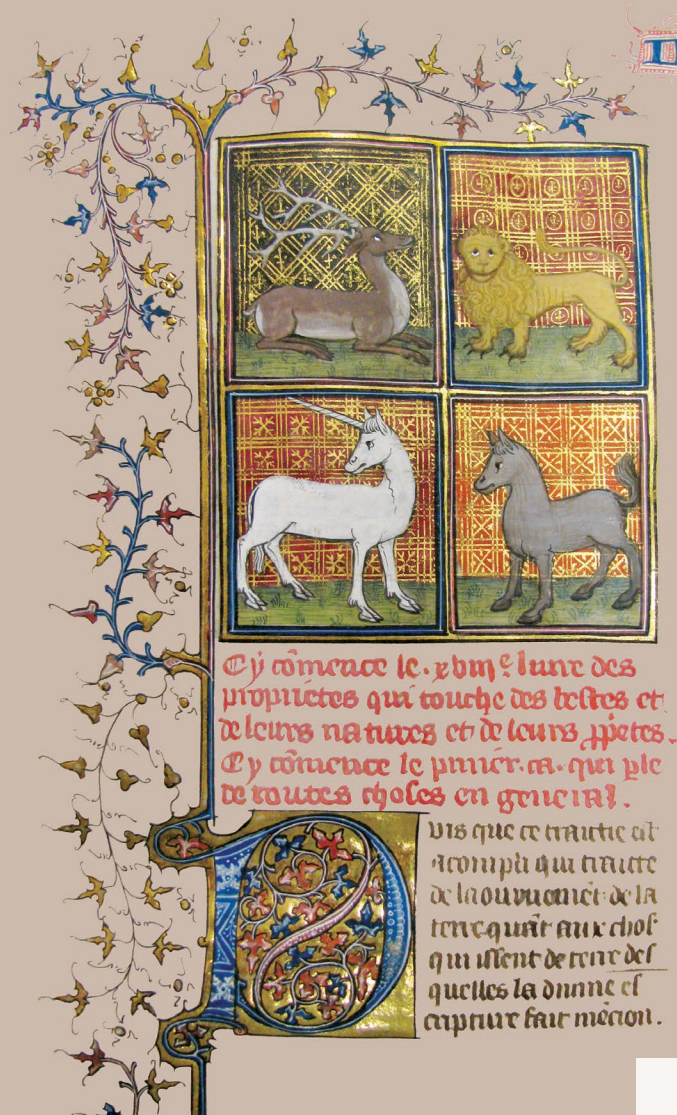 Cy cõmence le .xviii.e liure des
proprietes qui touche des bestes et
de leurs natures et de leurs ꝓpietes.
Cy cõmence le pmier .ca. qui ꝑle
de toutes choses en general.
Puis que ce traictie est
acompli qui traicte
de laournemẽt de la
terre quãt aux chos
qui issent de terre des
quelles la diuine es
cripture fait mẽcion.